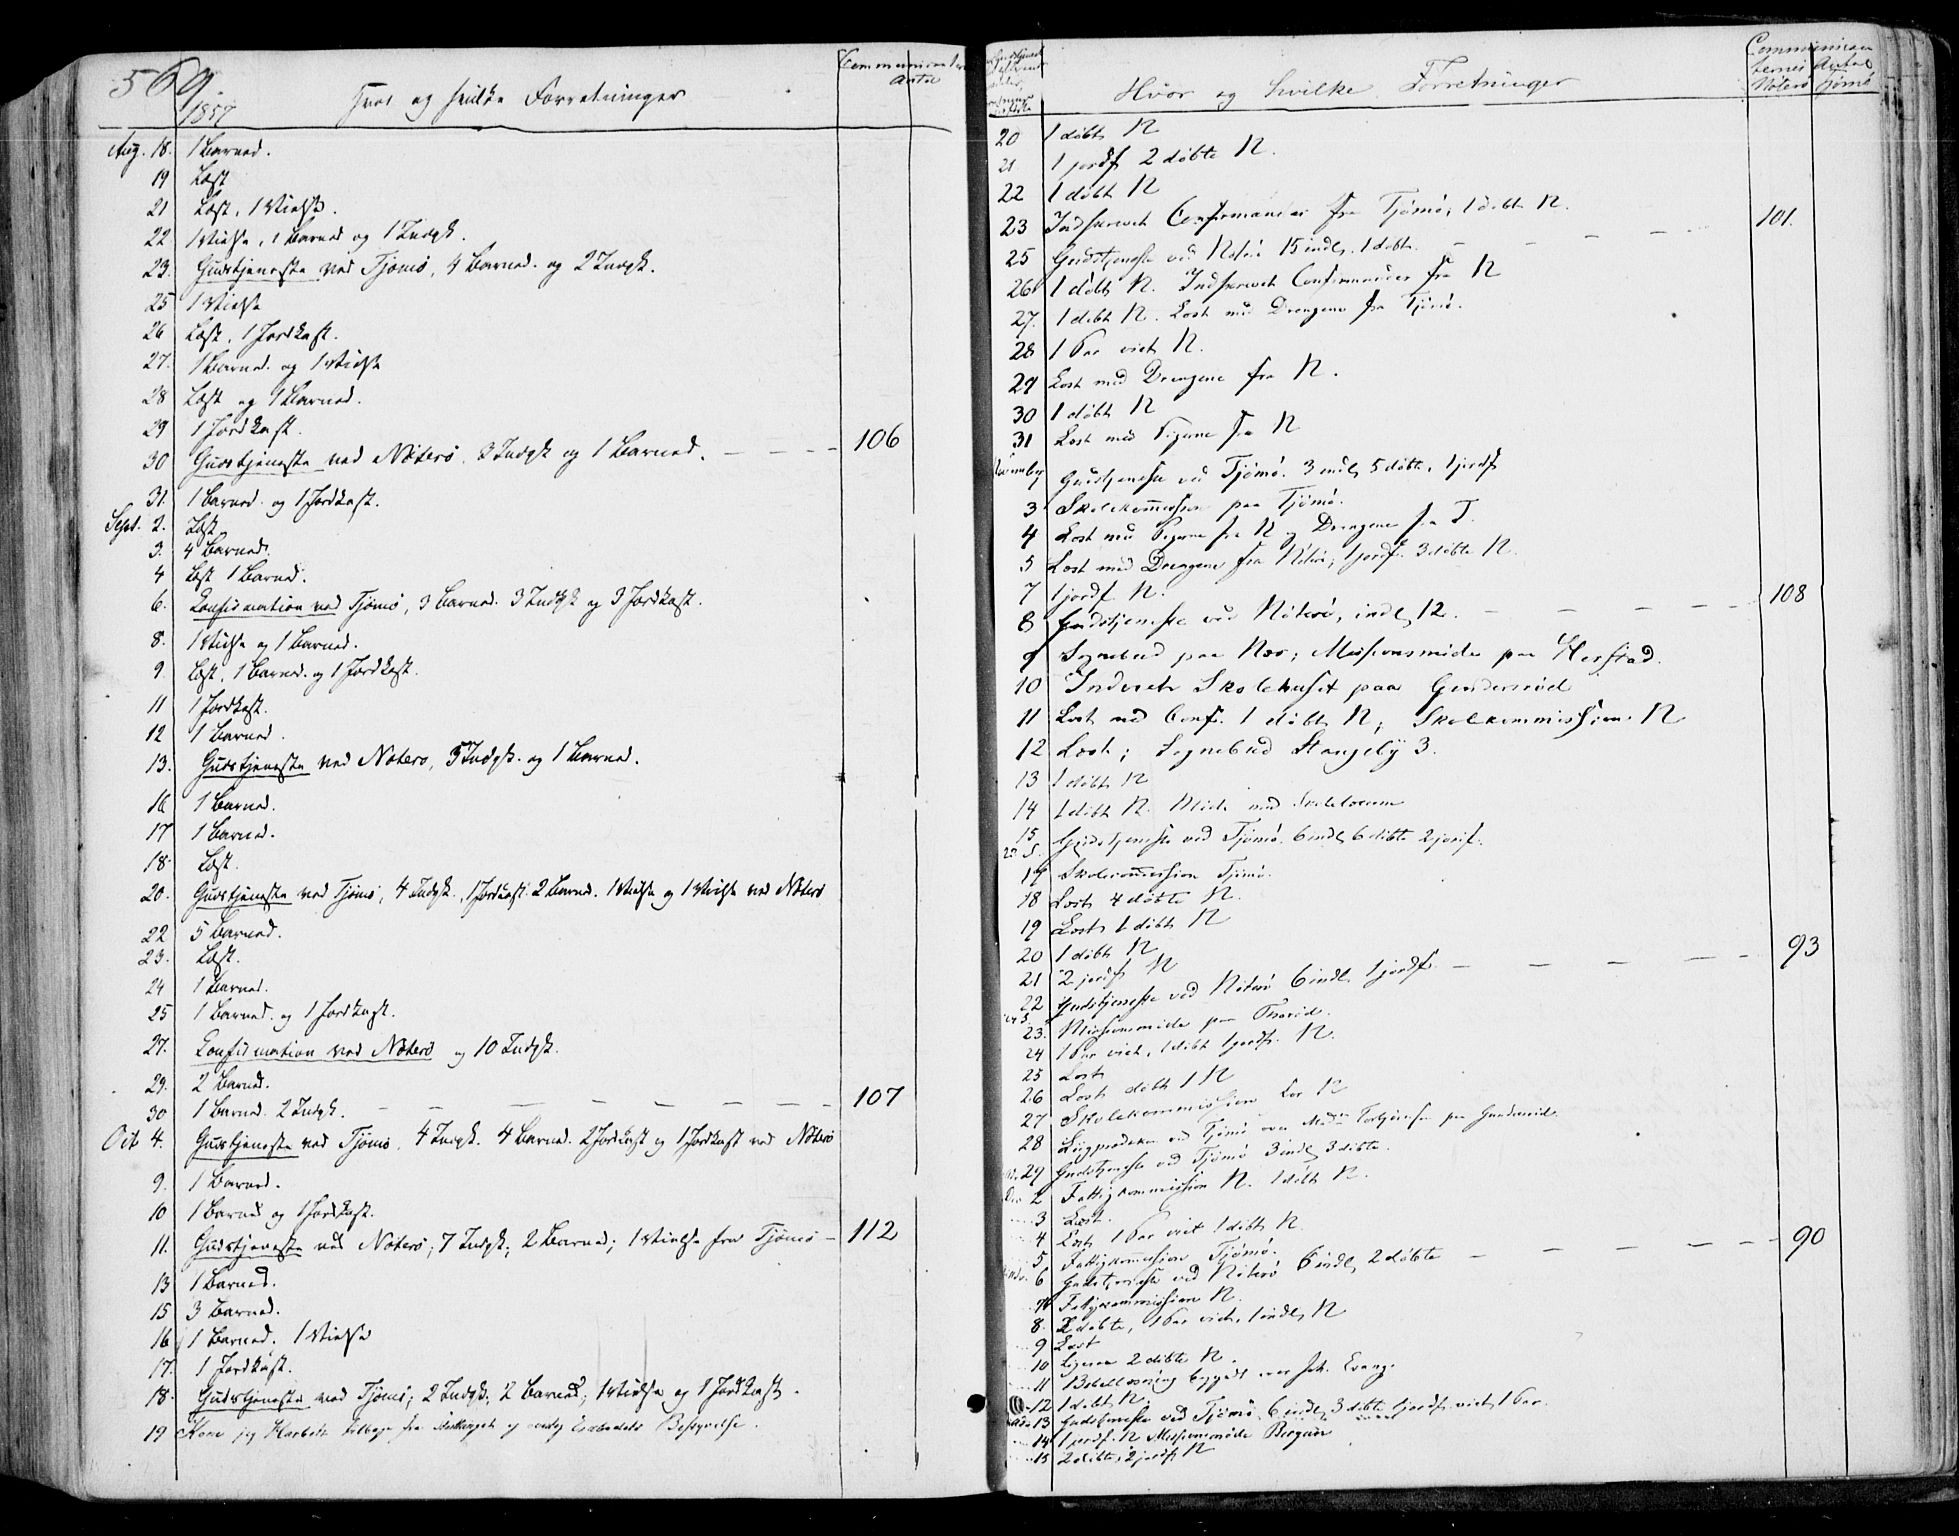 569.
1857
Hvor og hvilke Forretninger
Communicanter
Antal
Aug. 18. 1 Barned.
19 Læst
21 Læst, 1 Vielse.
22 1 Vielse, 1 Barned og 1 Indgk.
23. Gudstjeneste ved Tjømø, 4 Barned. og 2 Indgk.
25 1 Vielse
26 Læst, 1 Jordkast.
27. 1 Barned. og 1 Vielse
28 Læst og 1 Barned.
29 1 Jordkast.
30 Gudstjeneste ved Nøterø. 3 Indgk og 1 Barned. — — — - 106
31. 1 Barned. og 1 Jordkast.
Sept. 2. Læst
3. 4 Barned.
4 Læst 1 Barned.
6. Confirmation ved Tjømø, 3 Barned. 3 Indgk og 3 Jordkast.
8. 1 Vielse og 1 Barned.
9. Læst, 1 Barned. og 1 Jordkast.
11 1 Jordkast.
12 1 Barned.
13. Gudstjeneste ved Nøterø, 5 Indgk. og 1 Barned.
16 1 Barned.
17 1 Barned.
18. Læst.
20. Gudstjeneste ved Tjømø, 4 Indgk., 1 Jordkast. 2 Barned. 1 Vielse og 1 Vielse ved Nøterø
22 5 Barned.
23. Læst.
24 1 Barned.
25 1 Barned. og 1 Jordkast.
27. Confirmation ved Nøterø og 10 Indgk.
29. 2 Barned.
30 1 Barned. 2 Indgk. — — — — — — — 107
Oct 4. Gudstjeneste ved Tjømø. 4 Indgk. 4 Barned. 2 Jordkast og 1 Jordkast ved Nøterø
9. 1 Barned.
10 1 Barned og 1 Jordkast.
11. Gudstjeneste ved Nøterø; 7 Indgk; 2 Barned; 1 Vielse fra Tjømø — 112
13 1 Barned.
15 3 Barned.
16 1 Barned. 1 Vielse
17. 1 Jordkast.
18. Gudstjeneste ved Tjømø; 2 Indgk; 2 Barned; 1 Vielse og 1 Jordkast.
19 Kom jeg tilbage fra og Embedets Bestyrelse.
Hvor og hvilke Forretninger
Communican
ternes Antal
Nøterø Tjømø
20 1 døbt N
21 1 jordf 2 døbte N.
22 1 døbt N
23 Indskrevet Confirmander fra Tjømø, 1 døbt N.
25 Gudstjeneste ved Nøterø 15 indl. 1 døbt. — — — — 101.
26 1 døbt N. Indskrevet Confirmander fra N
27. 1 døbt N. Læst med Drengene fra Tjømø.
28 1 Par viet N.
29 Læst med Drengene fra N.
30 1 døbt N
31 Læst med Pigerne fra N
November Gudstjeneste ved Tjømø. 3 indl, 5 døbte, 1 jordf
3 Skolekommission paa Tjømø.
4 Læst med Pigerne fra N og Drengene fra T.
5 Læst med Drengene fra Nøterø, 1 jordf. 3 døbte N.
7 1 jordf N.
8 Gudstjeneste ved Nøterø, indl, 12. — — — — 108
9 Sognebud paa Næs; Missionsmøde paa Herstad.
10 Indviet Skolehuset paa Gunderrød
11 Læst med Conf. 1 døbt N; Skolekommission N
12 Læst; Sognebud Stangeby 3.
13 1 døbt N
14 1 døbt N. Møde med Skolelærerne
15 Gudstjeneste ved Tjømø. 6 indl, 6 døbte 2 jordf.
17 Skolecommission Tjømø.
18 Læst 4 døbte N.
19 Læst 1 døbt N
20 1 døbt N
21 2 jordf N
22 Gudstjeneste ved Nøterø 6 indl, 1 jordf. — — — — 93
23. Missionsmøde paa
24 1 Par viet, 1 døbt 1 jordf. N.
25 Læst
26 Læst døbt 1 N
27 Skolekommission for N
28 Liigprædiken ved Tjømø over paa
29 Gudstjeneste ved Tjømø 3 indl, 3 døbte.
2 Fattigkommission N. 1 døbt N.
3 Læst.
4 Læst, 1 Par viet 1 døbt N.
5 Fattigkommission Tjømø.
6 Gudstjeneste ved Nøterø 6 indl, 2 døbte — — — — 90
7 Fattigkommission N.
8. 2 døbte, 1 Par viet, 1 indl, N
9 Læst
10 2 døbte N.
11 Bibellæsning over Joh. Evang.
12 1 døbt N.
13 Gudstjeneste ved Tjømø, 6 indl, 3 døbte 1 jordf. viet 1 Par.
14 1 jordf. N Missionsmøde Bergan
15 2 døbte, 2 jordf N